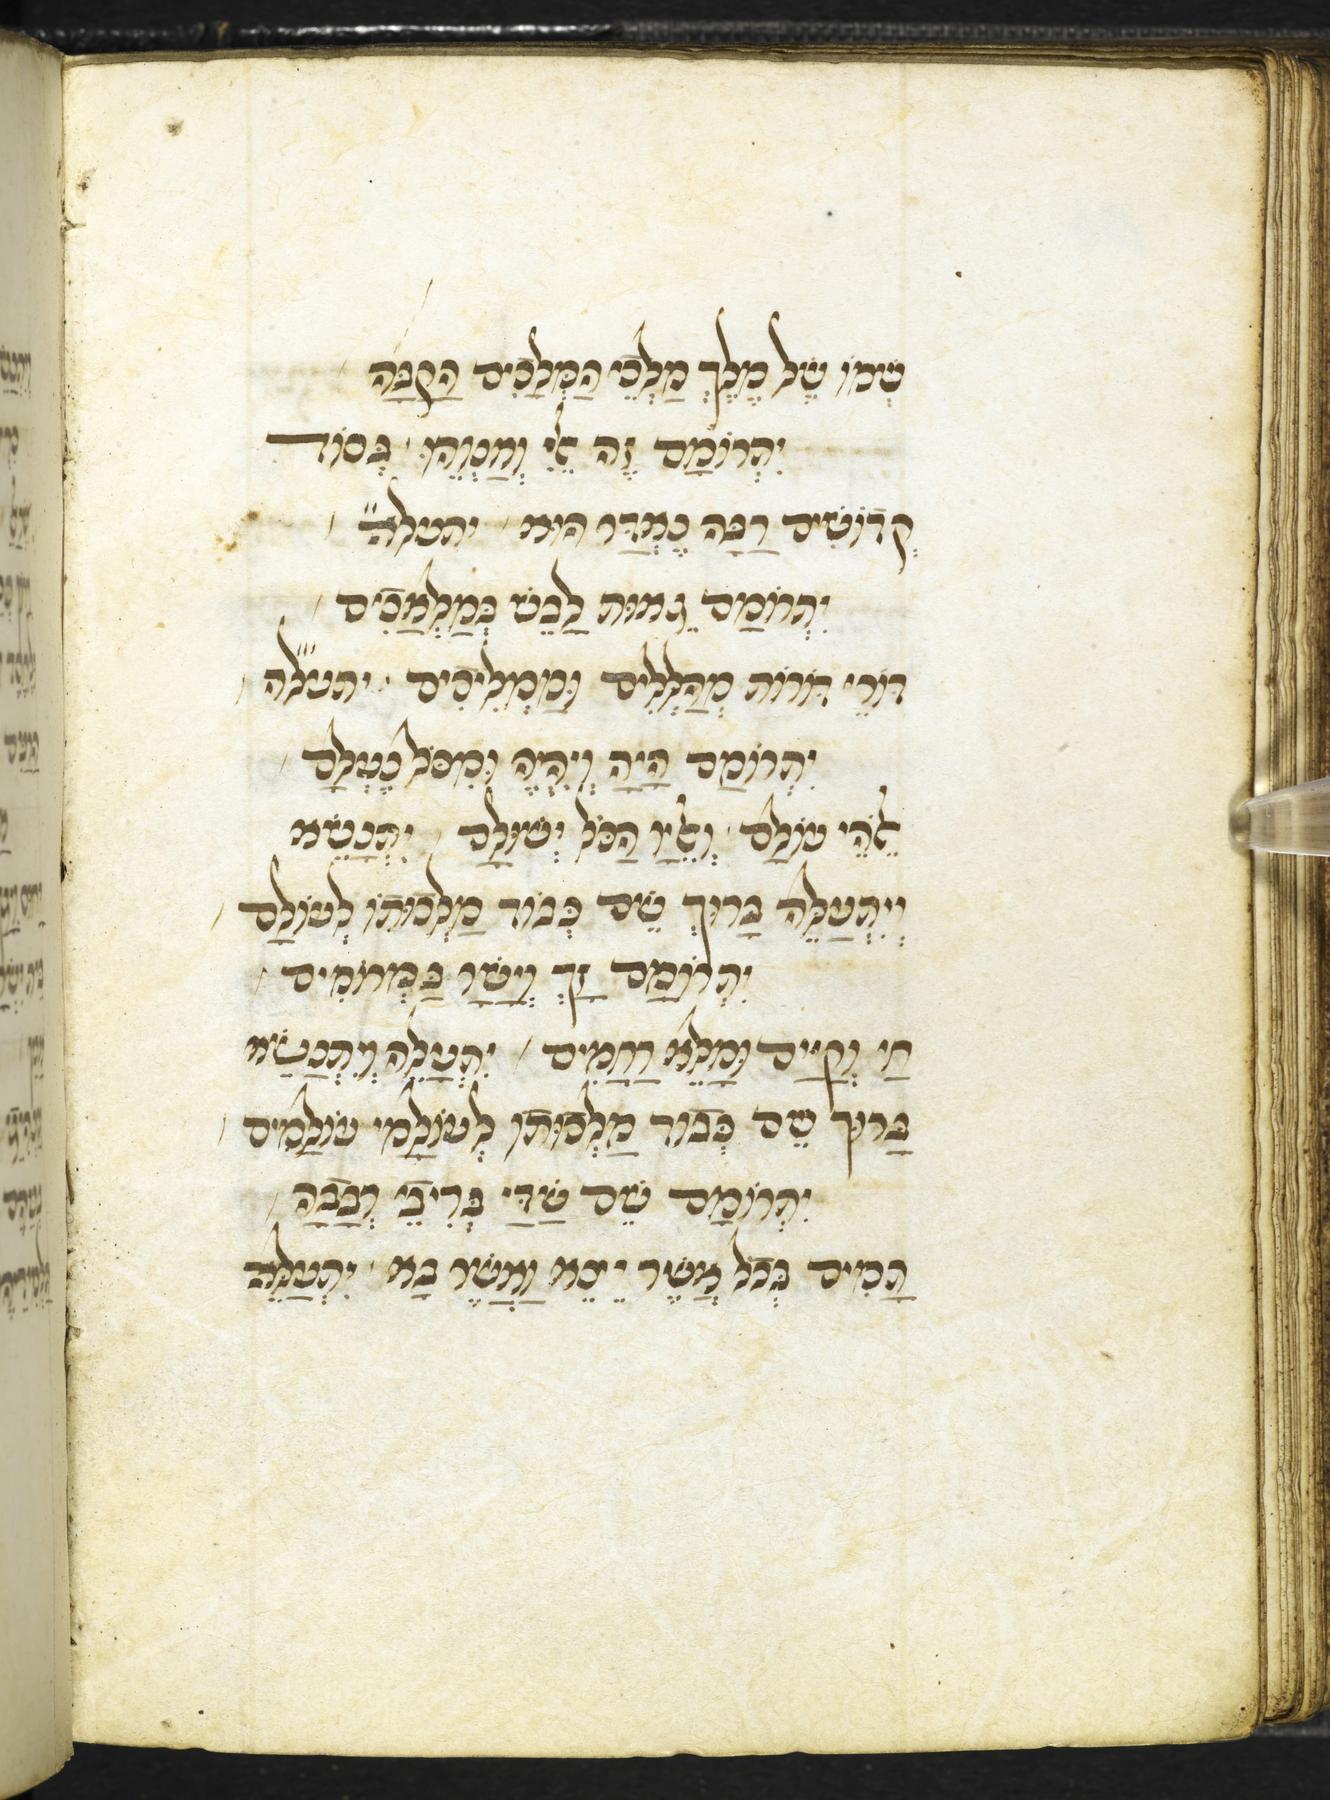 שְׁמוֹ שֶׁל מֶלֶךְ מַלְכֵי הַמְּלָכִים הַקבָּה
יִתְרוֹמַם זֶה אֵלִי וְאַנְוֵהוּ בְּסוֹד
קְדוֹשִׁים רַבָּה נֶאְדָּר הוּא יתעלה
יִתְרוֹמַם גאוּת לָבֵשׁ בְּמַלְאָכִים
דּוֹרֵי דּוֹרוֹת מְהַלְלִים וּמַמְלִיכִים יתעלה
יִתְרוֹמַם הָיָה וְיִהְיֶה וּמִכֹּל נֶעְלָם
אֱלֹהֵי עוֹלָם וְאֵלָיו הַכֹּל יְשׁוּלָם יִתְנַשֵּׂא
וְיִתְעַלֶּה בָּרוּךְ שֵׁם כְּבוֹד מַלְכוּתוֹ לְעוֹלָם
יִתְרוֹמַם זַךְ וְיָשָׁר בַּמְּרוֹמִים
חַי וְקַיָּים וּמָלֵא רַחֲמִים יִתְעַלֶּה וְיִתְנַשֵּׂא
בָּרוּךְ שֵׁם כְּבוֹד מַלְכוּתוֹ לְעוֹלְמֵי עוֹלָמִים
יִתְרוֹמַם שֵׁם שַׁדַּי בְּרִיבֵּי רְבָבָה
תָמִים בְּכֹל אֲשֶׁר וַאֲשֶׁר בָּא יִתְעַלֶּה